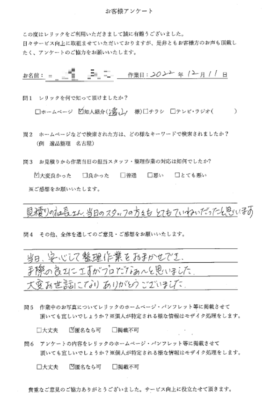 お客様アンケート
この度はレリックをご利用いただきまして誠に有難うございました。
日々サービス向上に取組ませていただいておりますが、是非ともお客様方のお声も頂戴したく、アンケートのご協力をお願いいたします。
お名前: 作業日: 2022年12月11日
問1 レリックを何で知って頂けましたか?
□ホームページ ☑知人紹介(遠山 様)□チラシ □テレビ・ラジオ( )
問2 ホームページなどで検索された方は、どの様なキーワードで検索されましたか?
(例 遺品整理 名古屋)
問3 お見積りから作業当日の担当スタッフ・整理作業の対応は如何でしたか?
☑大変良かった □良かった □普通 □悪い □とても悪い
※ご感想をお願いいたします。
見積りの社長さん、当日のスタッフの方々も とてもていねいだったと思います
問4 その他、全体を通してのご意見・ご感想をお願いいたします。
当日、安心して整理作業をおまかせでき、
手際の良さにさすがプロだなぁと思いました。
大変お世話になりありがとうございました。
問5 作業中のお写真についてレリックのホームページ・パンフレット等に掲載させて
頂いても宜しいでしょうか?※個人が特定される様な情報はモザイク処理をします。
□大丈夫 ☑匿名なら可 □掲載不可
問6 アンケートの内容をレリックのホームページ・パンフレット等に掲載させて
頂いても宜しいでしょうか?※個人が特定される様な情報はモザイク処理をします。
□大丈夫 ☑匿名なら可 □掲載不可
貴重なご意見のご協力ありがとうございました。サービス向上に役立たせて頂きます。